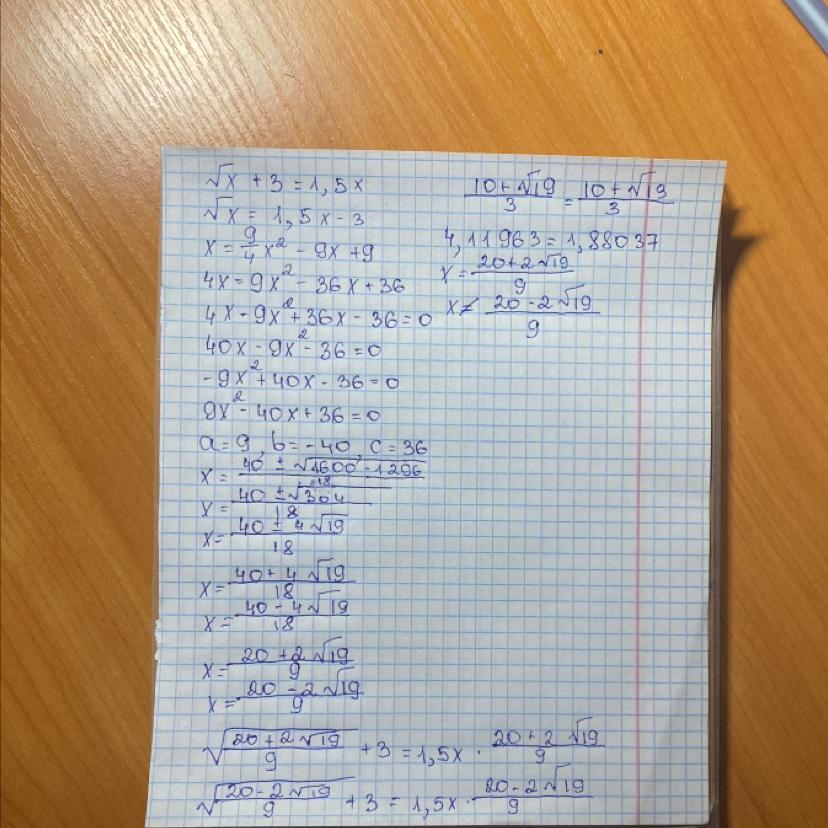 √x + 3 = 1,5x
√x = 1,5x - 3
x = 9/4 x² - 9x + 9
4x = 9x² - 36x + 36
4x - 9x² + 36x - 36 = 0
40x - 9x² - 36 = 0
-9x² + 40x - 36 = 0
9x² - 40x + 36 = 0
a = 9, b = -40, c = 36
x = (40 ± √(1600 - 1296))/18
x = (40 ± √304)/18
x = (40 ± 4√19)/18
x = (40 + 4√19)/18
x = (40 - 4√19)/18
x = (20 + 2√19)/9
x = (20 - 2√19)/9
√((20 + 2√19)/9) + 3 = 1,5x · (20 + 2√19)/9
√((20 - 2√19)/9) + 3 = 1,5x · (20 - 2√19)/9
(10 + √19)/3 = (10 + √19)/3
4,11963 = 1,88037
x = (20 + 2√19)/9
x ≠ (20 - 2√19)/9